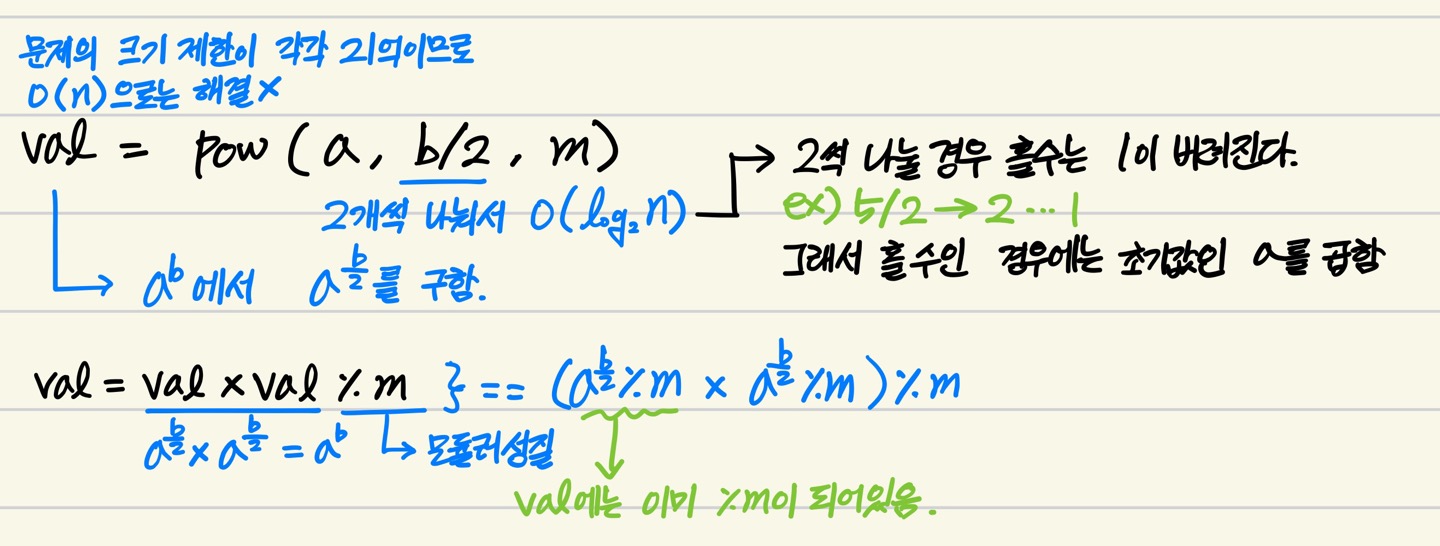 문제의 크기 제한이 각각 21억이므로
O(n)으로는 해결 X
val = pow(a, b/2, m)
2개씩 나눠서 O(log₂n)
→ 2씩 나눌 경우 홀수는 1이 버려진다.
ex) 5/2 → 2 ··· 1
그래서 홀수인 경우에는 초기값인 a를 곱함
→ a^b에서 a^(b/2)를 구함.
val = val × val % m } == (a^(b/2) % m × a^(b/2) % m) % m
a^(b/2) × a^(b/2) = a^b → 모듈러성질
val에는 이미 %m이 되어있음.